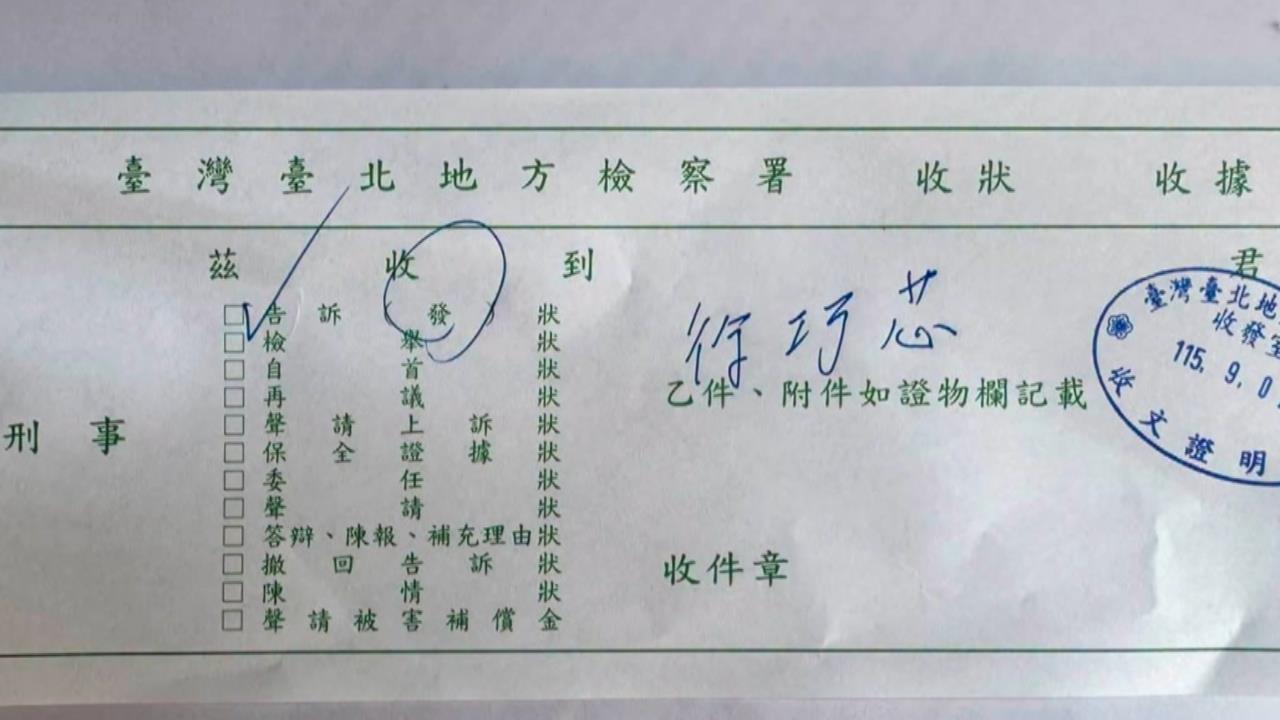 臺灣臺北地方檢察署 收狀 收據
茲收到
徐巧芯 君
刑事
□告訴(發)狀
□檢舉狀
□自首狀
□再議狀
□聲請上訴狀
□保全證據狀
□委任狀
□聲請狀
□答辯、陳報、補充理由狀
□撤回告訴狀
□陳情狀
□聲請被害補償金
乙件、附件如證物欄記載
收件章
臺灣臺北地
收發室
115. 9. 0
收文證明